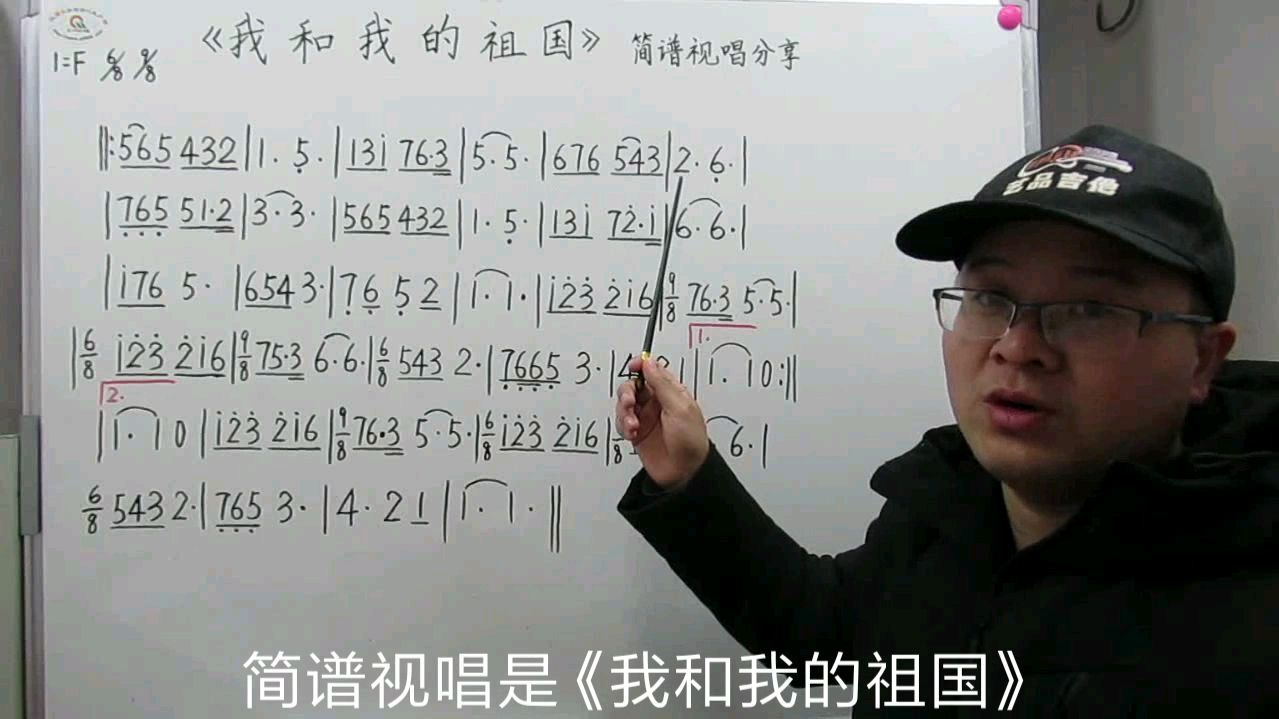 《我和我的祖国》 简谱视唱分享
1=F 6/8 9/8
‖:565 432|1. 5̣.|13i 76·3|5·5·|676 543|2. 6̣.|
|7̣6̣5̣ 51·2|3·3·|565 432|1· 5̣·|13i 72̇·i|6·6·|
|i76 5·|654 3·|7̣ 6̣ 5̣ 2|1·1·|i2̇3̇ 2̇i6|9/8 76·3 5·5·|
1.
|6/8 i2̇3̇ 2̇i6|9/8 75·3 6·6·|6/8 543 2·|7̣6̣6̣5̣ 3·|4 |1· 1 0:‖
2.
|1· 1 0|i2̇3̇ 2̇i6|9/8 76·3 5·5·|6/8 i2̇3̇ 2̇i6| 6·|
6/8 543 2·|7̣6̣5̣ 3·|4· 2 1|1· 1·‖
名品吉他
简谱视唱是《我和我的祖国》